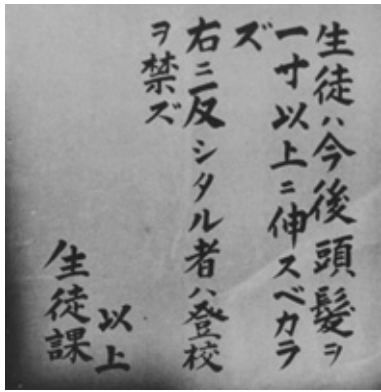 生徒ハ今後頭髪ヲ
一寸以上ニ伸スベカラ
ズ
右ニ反シタル者ハ登校
ヲ禁ズ
以上
生徒課